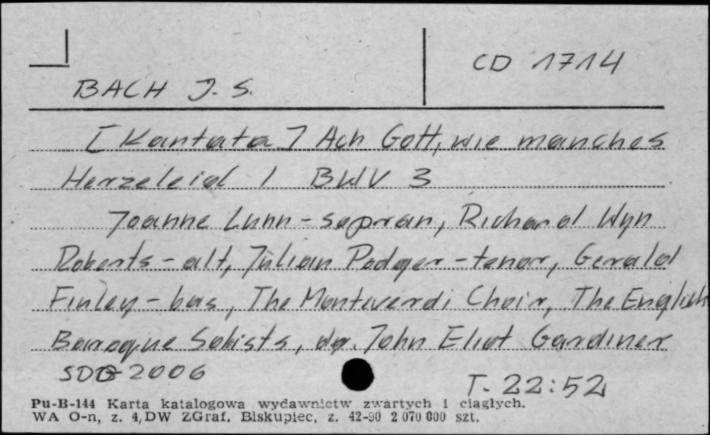 CD 1714
BACH J. S.
[Kantata] Ach Gott, wie manches
Herzeleid / BWV 3
Joanne Lunn - sopran, Richard Wyn
Roberts - alt, Julian Podger - tenor, Gerald
Finley - bas, The Monteverdi Choir, The English
Baroque Soloists, dyr. John Eliot Gardiner
SDG 2006
T. 22:52
Pu-B-144 Karta katalogowa wydawnictw zwartych i ciągłych.
WA O-n, z. 4, DW ZGraf. Biskupiec, z. 42-90 2 070 000 szt.